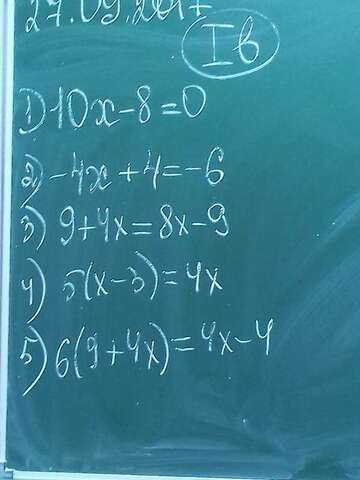 27.09.2017
I в
1) 10x-8=0
2) -4x+4=-6
3) 9+4x=8x-9
4) 5(x-3)=4x
5) 6(9+4x)=4x-4